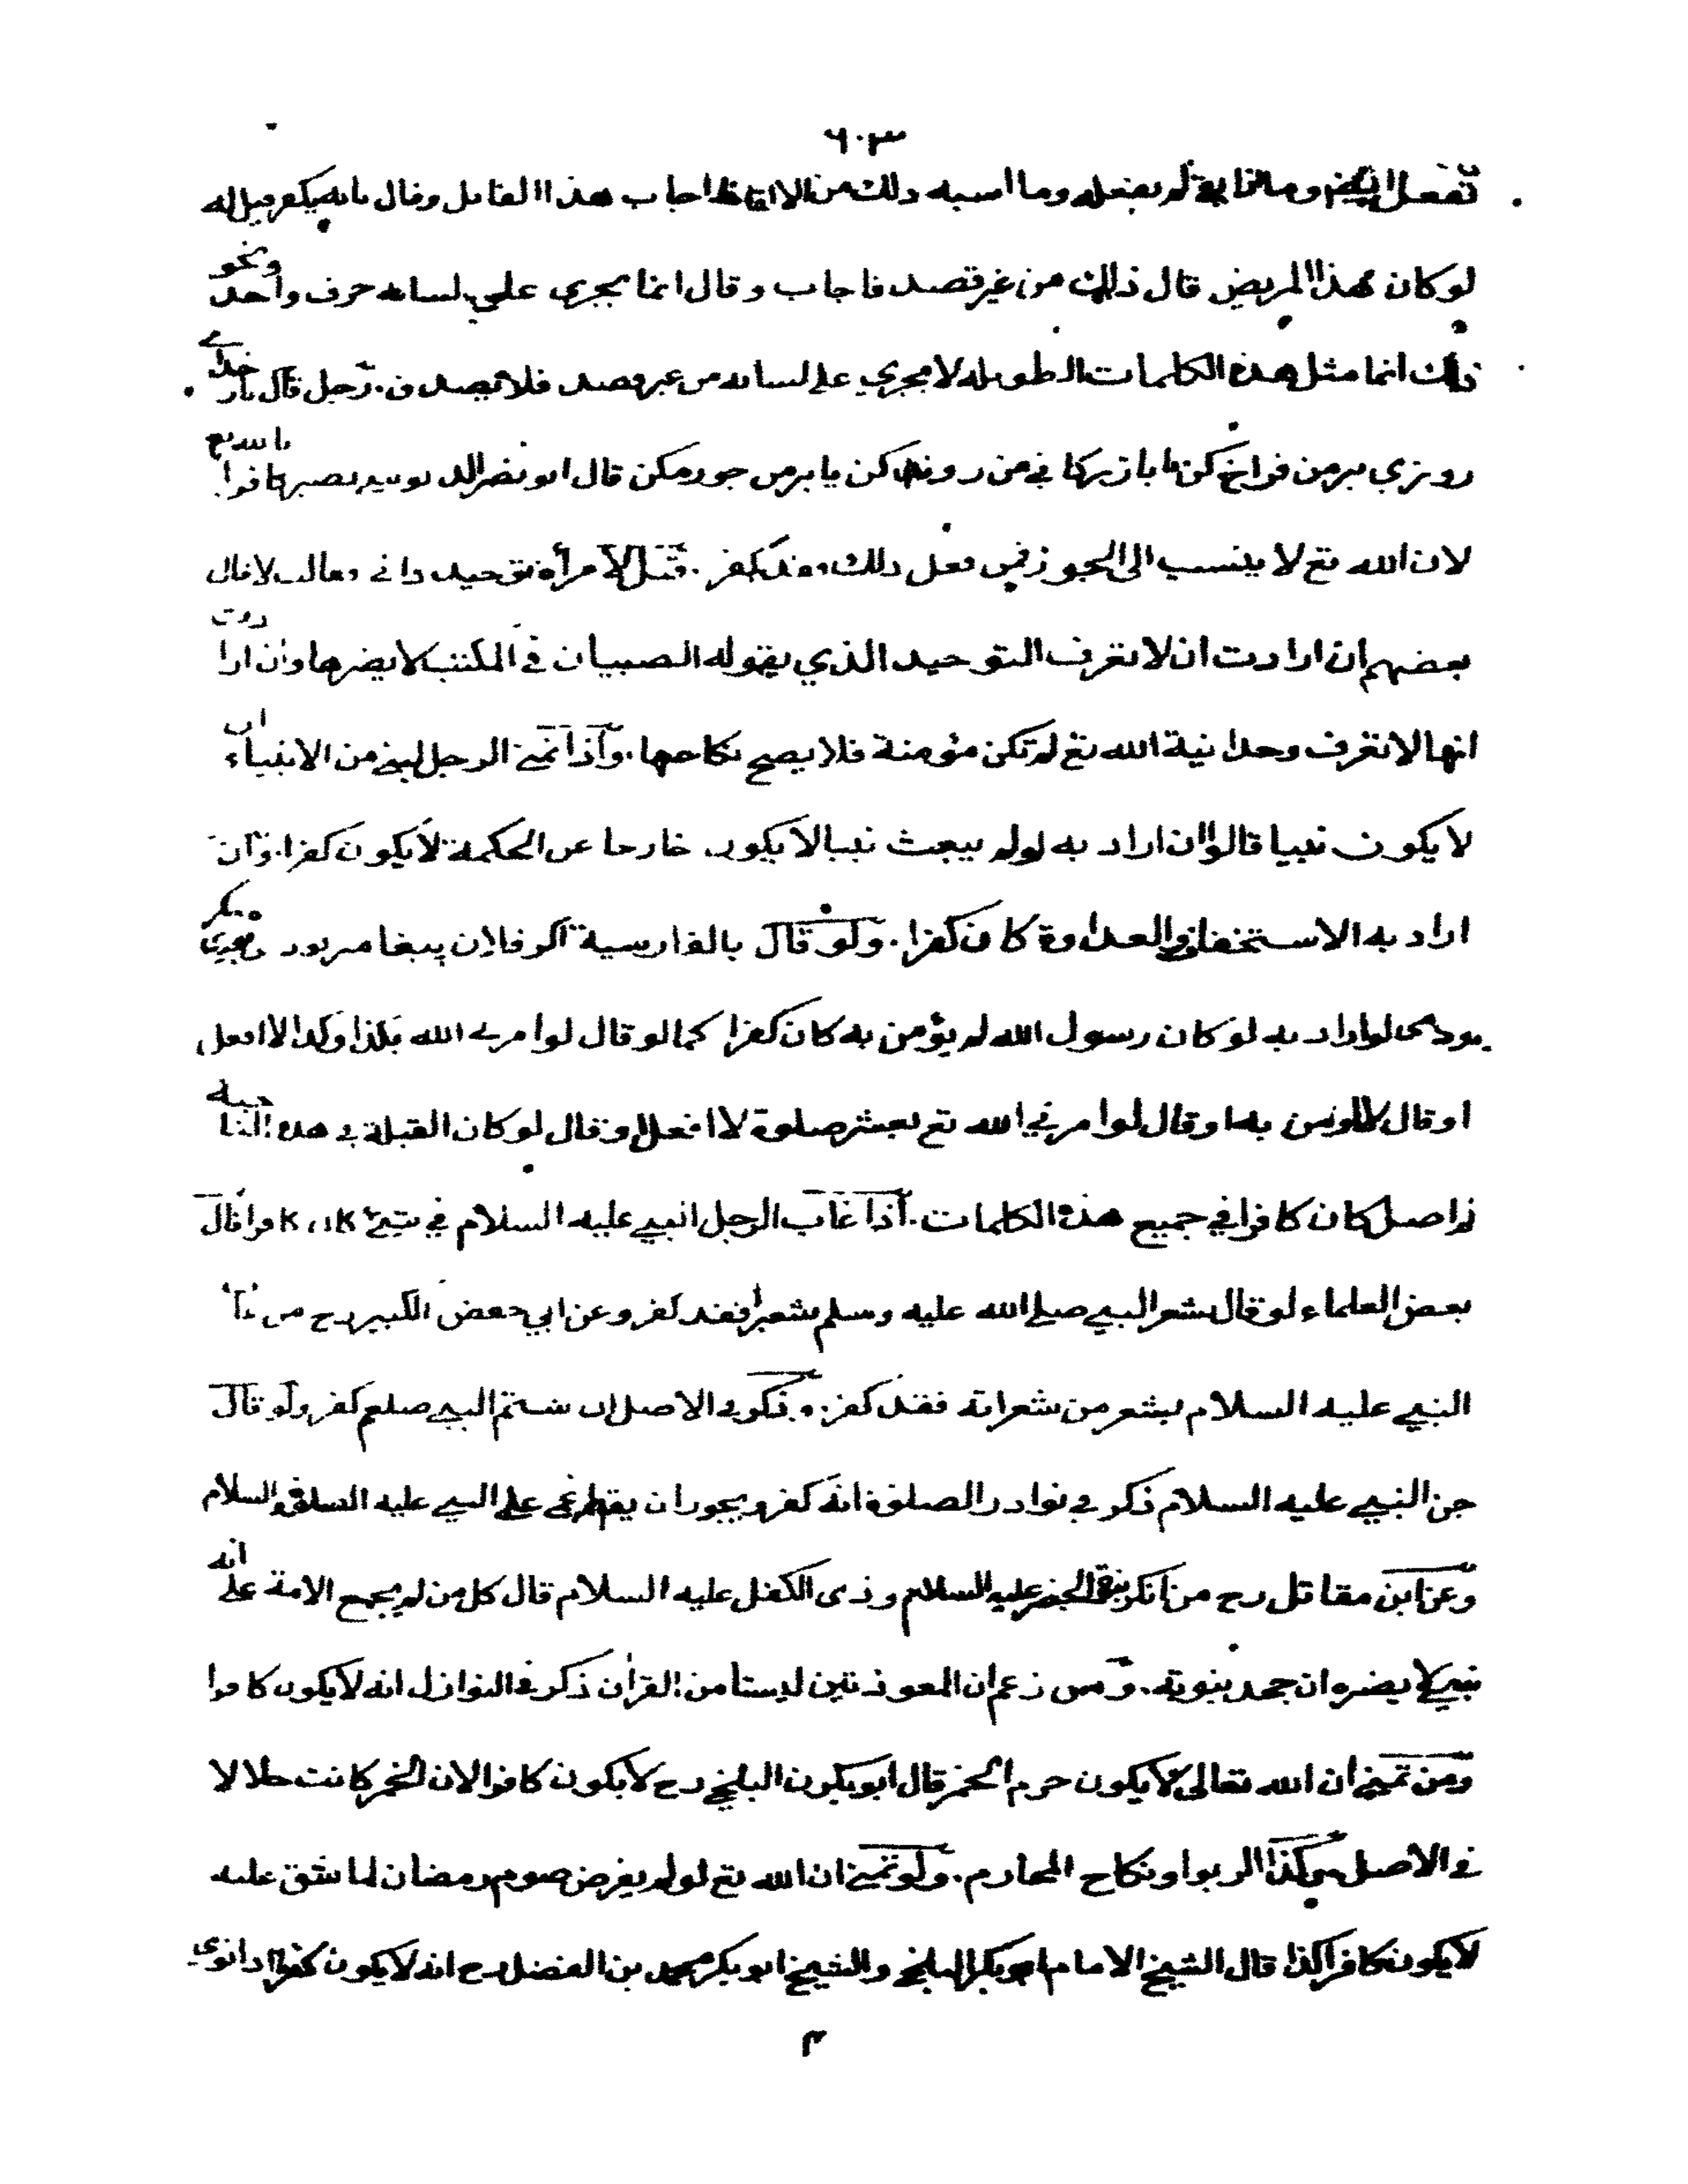 ٦٠٣
تفعل ايضا وماذا بقي لم يفعله وما اشبه ذلك من الالفاظ اجاب هذا القائل وقال بانه يكفر قيل له
لو كان هذا المريض قال ذلك من غير قصد فاجاب وقال انما يجري على لسانه حرف واحد ونحو
ذلك انما مثل هذه الكلمات الطويلة لا يجري على لسانه من غير قصد فلا يصدق. رجل قال بار خداى
روزي برمن فراخ كن يا بازركانى من رونده كن يا برمن جور مكن قال ابو نصر الدبوسي يصير كافرا بالله تع
لان الله تع لا ينسب الى الجور فمن فعل ذلك فقد كفر. قيل لامرأة توحيد داني فقالت لا قال
بعضهم ان ارادت ان لا تعرف التوحيد الذي يقوله الصبيان في المكتب لا يضرها وان ارادت
انها لا تعرف وحدانية الله تع لم تكن مؤمنة فلا يصح نكاحها. واذا تمنى الرجل لنبي من الانبياء ان
لا يكون نبيا قالوا ان اراد به لو لم يبعث نبيا لا يكون خارجا عن الحكمة لا يكون كفرا. وان
اراد به الاستخفاف والعداوة كان كفرا. ولو قال بالفارسية اكر فلان پيغامبر بود
بودى لو اراد به لو كان رسول الله لم يؤمن به كان كفرا كما لو قال لو امرني الله بكذا وكذا لا افعل
او قال لا اومن به او قال لو امرني الله تع بعشر صلوة لا افعل او قال لو كان القبلة في هذه الناحية
لم اصل كان كافرا في جميع هذه الكلمات. اذا عاب الرجل النبي عليه السلام في شيء كان كافرا قال
بعض العلماء لو قال لشعر النبي صلى الله عليه وسلم شعيرا فقد كفر وعن ابي حفص الكبير رح من عاب
النبي عليه السلام بشعر من شعراته فقد كفر. وذكر في الاصل ان شتم النبي صلعم كفر ولو قال
جن النبي عليه السلام ذكر في نوادر الصلوة انه كفر ويجوز ان يقال اغمي على النبي عليه الصلوة والسلام
وعن ابن مقاتل رح من انكر نبوة الخضر عليه السلام وذى الكفل عليه السلام قال كل من لم يجمع الامة على انه
نبي لا يضره ان جحد بنوته. ومن زعم ان المعوذتين ليستا من القران ذكر في النوازل انه لا يكون كافرا
ومن تمنى ان الله تعالى لا يكون حرم الخمر قال ابو بكر البلخي رح لا يكون كافرا لان الخمر كانت حلالا
في الاصل وكذا الربوا ونكاح المحارم. ولو تمنى ان الله تع لو لم يفرض صوم رمضان لما شق عليه
لا يكون كافرا كذا قال الشيخ الامام ابو بكر البلخي والشيخ ابو بكر محمد بن الفضل رح انه لا يكون كفرا اذا نوى